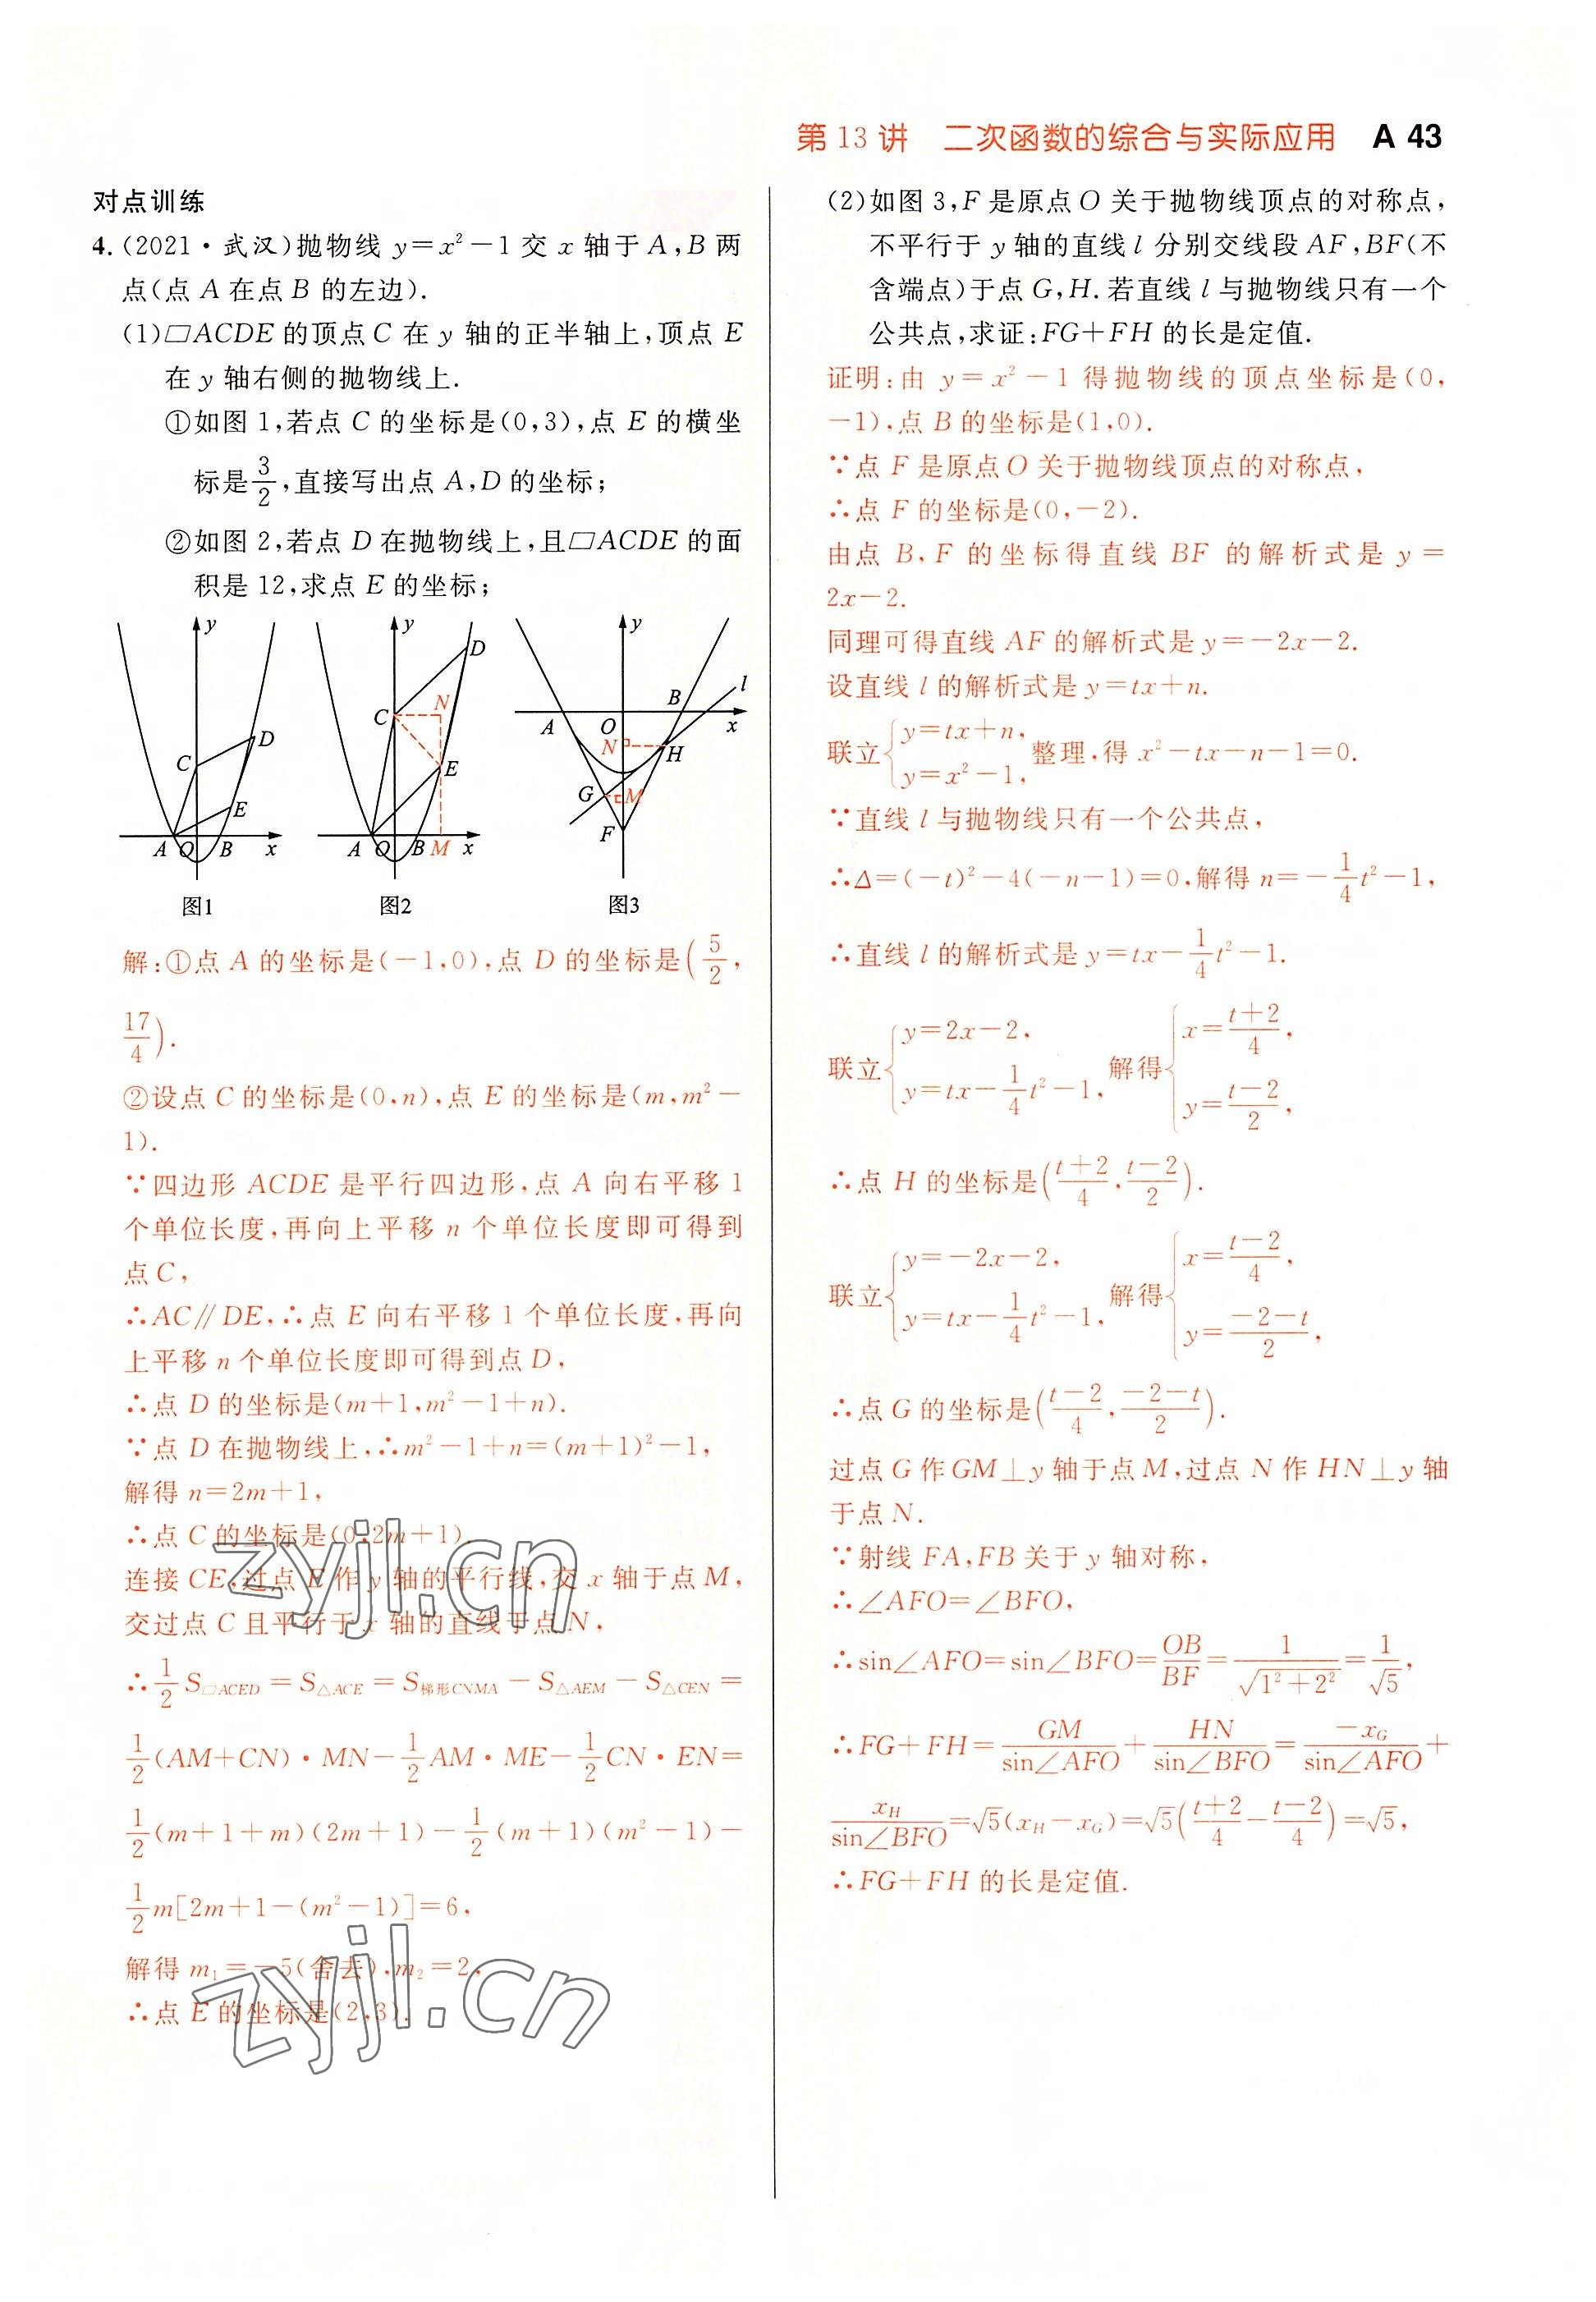 第 13 讲　二次函数的综合与实际应用　A 43
对点训练
4. (2021·武汉)抛物线 y=x²-1 交 x 轴于 A,B 两
点(点 A 在点 B 的左边).
(1)▱ACDE 的顶点 C 在 y 轴的正半轴上,顶点 E
在 y 轴右侧的抛物线上.
①如图 1,若点 C 的坐标是(0,3),点 E 的横坐
标是3/2,直接写出点 A,D 的坐标;
②如图 2,若点 D 在抛物线上,且▱ACDE 的面
积是 12,求点 E 的坐标;
y C D E A O B x
图1
y D C N E A O B M x
图2
y l B A O x N H G M F
图3
解:①点 A 的坐标是(-1,0),点 D 的坐标是(5/2,
17/4).
②设点 C 的坐标是(0,n),点 E 的坐标是(m,m²-
1).
∵四边形 ACDE 是平行四边形,点 A 向右平移 1
个单位长度,再向上平移 n 个单位长度即可得到
点 C,
∴AC∥DE,∴点 E 向右平移 1 个单位长度,再向
上平移 n 个单位长度即可得到点 D,
∴点 D 的坐标是(m+1,m²-1+n).
∵点 D 在抛物线上,∴m²-1+n=(m+1)²-1,
解得 n=2m+1,
∴点 C 的坐标是(0,2m+1).
连接 CE,过点 E 作 y 轴的平行线,交 x 轴于点 M,
交过点 C 且平行于 x 轴的直线于点 N,
∴1/2 S▱ACED=S△ACE=S梯形CNMA-S△AEM-S△CEN=
1/2(AM+CN)·MN-1/2AM·ME-1/2CN·EN=
1/2(m+1+m)(2m+1)-1/2(m+1)(m²-1)-
1/2m[2m+1-(m²-1)]=6,
解得 m₁=-5(舍去),m₂=2,
∴点 E 的坐标是(2,3).
(2)如图 3,F 是原点 O 关于抛物线顶点的对称点,
不平行于 y 轴的直线 l 分别交线段 AF,BF(不
含端点)于点 G,H.若直线 l 与抛物线只有一个
公共点,求证:FG+FH 的长是定值.
证明:由 y=x²-1 得抛物线的顶点坐标是(0,
-1),点 B 的坐标是(1,0).
∵点 F 是原点 O 关于抛物线顶点的对称点,
∴点 F 的坐标是(0,-2).
由点 B,F 的坐标得直线 BF 的解析式是 y=
2x-2.
同理可得直线 AF 的解析式是 y=-2x-2.
设直线 l 的解析式是 y=tx+n.
联立{y=tx+n, y=x²-1,整理,得 x²-tx-n-1=0.
∵直线 l 与抛物线只有一个公共点,
∴Δ=(-t)²-4(-n-1)=0,解得 n=-1/4t²-1,
∴直线 l 的解析式是 y=tx-1/4t²-1.
联立{y=2x-2, y=tx-1/4t²-1,解得{x=(t+2)/4, y=(t-2)/2,
∴点 H 的坐标是((t+2)/4,(t-2)/2).
联立{y=-2x-2, y=tx-1/4t²-1,解得{x=(t-2)/4, y=(-2-t)/2,
∴点 G 的坐标是((t-2)/4,(-2-t)/2).
过点 G 作 GM⊥y 轴于点 M,过点 N 作 HN⊥y 轴
于点 N.
∵射线 FA,FB 关于 y 轴对称,
∴∠AFO=∠BFO,
∴sin∠AFO=sin∠BFO=OB/BF=1/√(1²+2²)=1/√5,
∴FG+FH=GM/sin∠AFO+HN/sin∠BFO=-x_G/sin∠AFO+
x_H/sin∠BFO=√5(x_H-x_G)=√5((t+2)/4-(t-2)/4)=√5,
∴FG+FH 的长是定值.
zyjl.cn
zyjl.cn